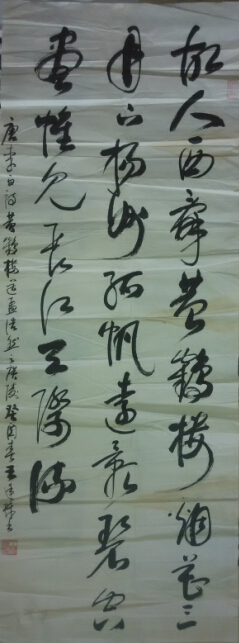 故人西辞黄鹤楼烟花三
月下扬州孤帆远影碧空
尽惟见长江天际流
唐李白诗黄鹤楼送孟浩然之广陵